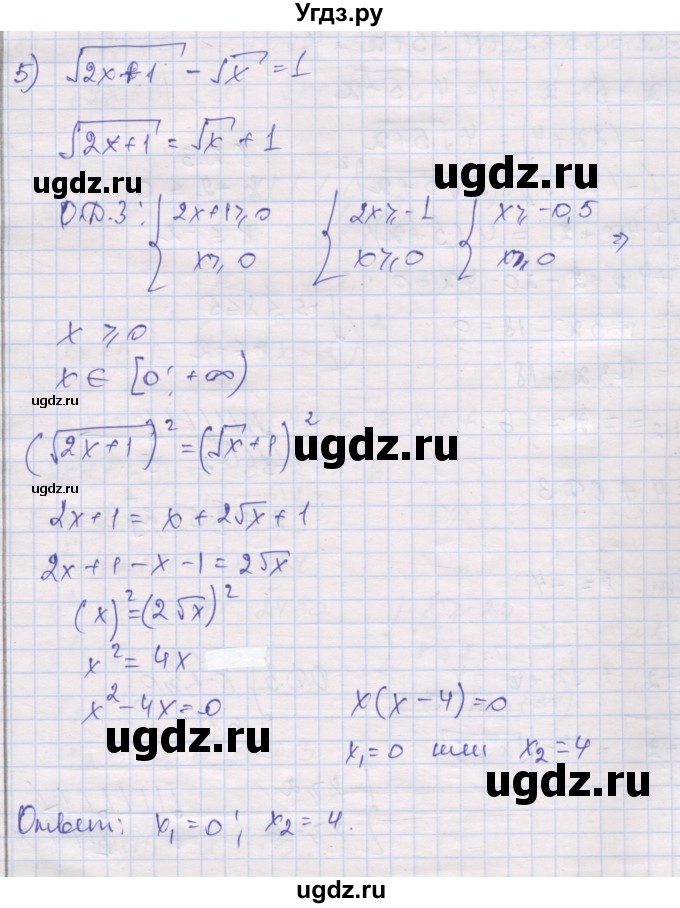 Угдз.ру
5) √(2x+1) - √x = 1
√(2x+1) = √x + 1
ugdz.ru ugdz.ru
О.Д.З: { 2x+1≥0 { 2x≥-1 { x≥-0,5 ⇒
x≥0 x≥0 x≥0
x ≥ 0
x ∈ [0; +∞)
ugdz.ru
(√(2x+1))² = (√x+1)²
ugdz.ru
ugdz.ru
2x+1 = x + 2√x + 1
2x+1-x-1 = 2√x
(x)² = (2√x)²
x² = 4x
x² - 4x = 0 x(x-4)=0
ugdz.ru
x₁=0 или x₂=4
ugdz.ru
ugdz.ru
Ответ: x₁=0; x₂=4.
ugdz.ru